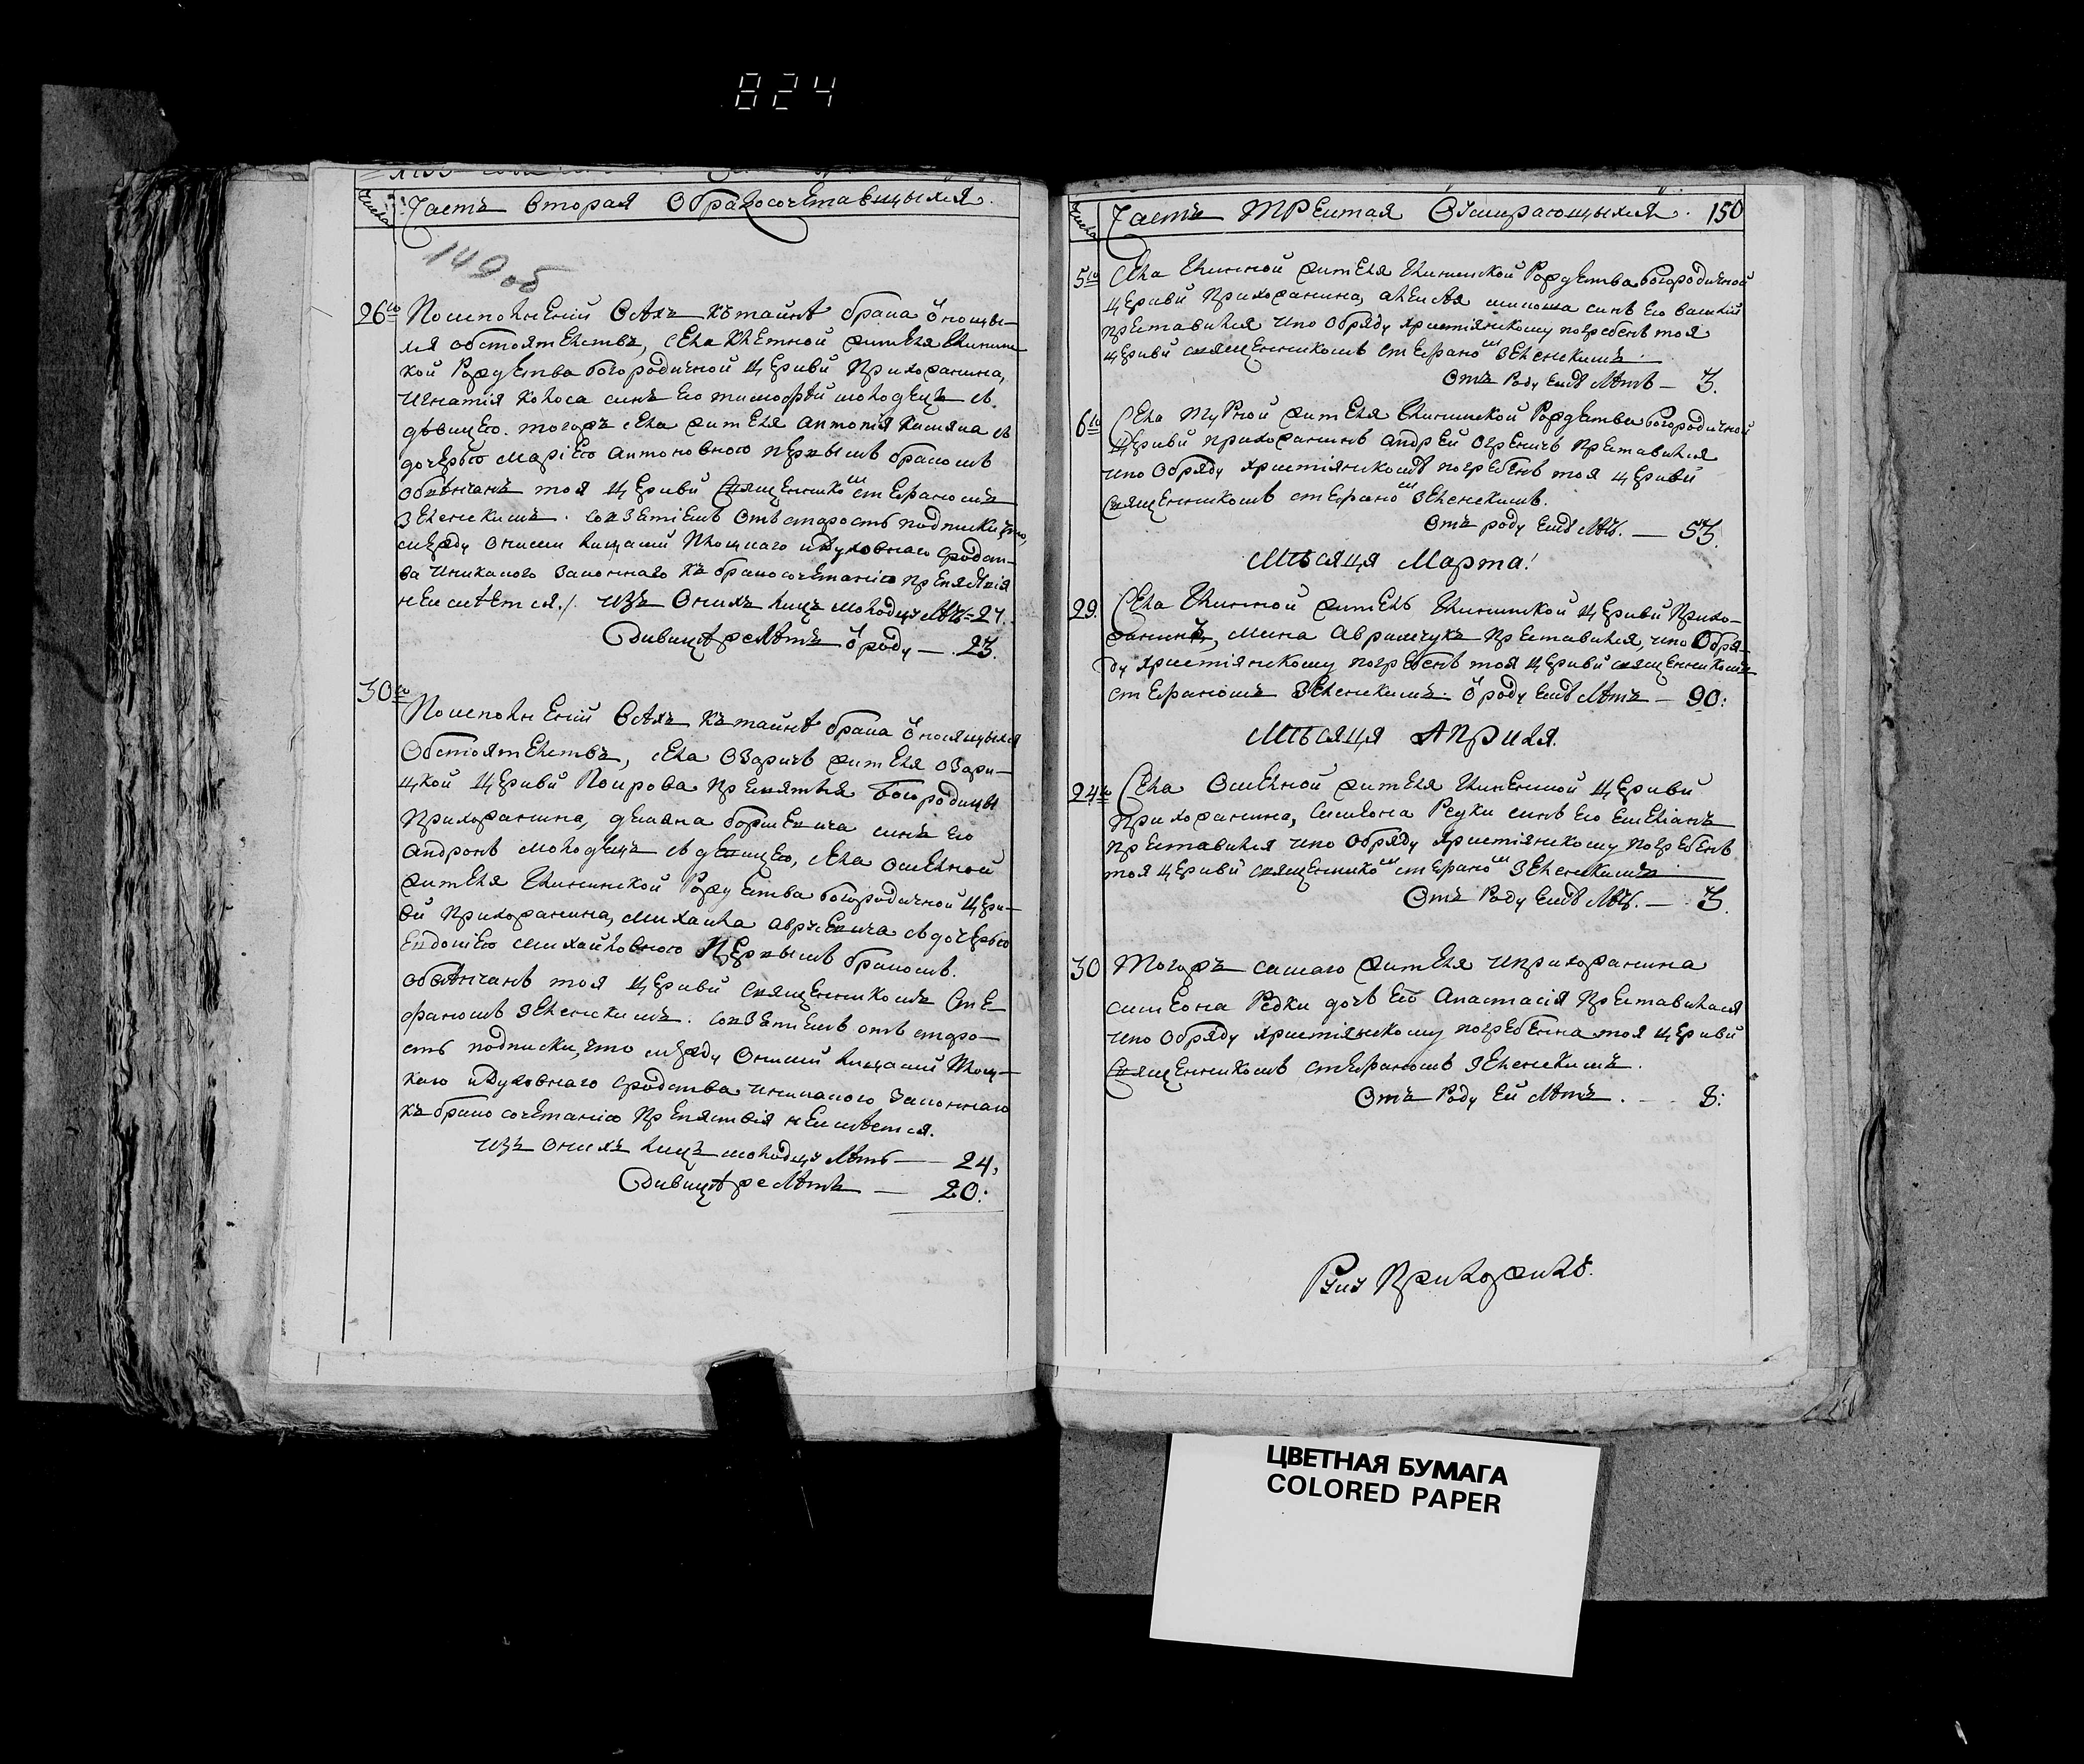 824
Числа
Частъ вторая Обракосочетавщыхся.
149 об
26го По исполнений всѣхъ къ тайнѣ брака относщы-
хся обстоятелствъ, села жителя
кой Рождества богородичной церкви Прихожанина,
Игнатія Колоса синъ его тимофей молодецъ съ
дѣвицею. тогожъ села жителя антонія Касяна съ
дочерью Маріею антоновною первымъ бракомъ
обвѣнчанъ тоя церкви Священникомъ стефаномъ
Зеленскимъ. со взятіемъ отъ старостъ подписки что,
между оними лицами плоцкаго идуховнаго сродст-
ва иникакого законнаго къ бракосочетанію препятствія
неимѣется./. изъ онихъ лицъ молодцу лѣтъ=27.
Адивицѣ же лѣтъ ѿроду — 23.
30го
По исполнений всѣхъ къ тайнѣ брака ѿносящыхся
Обстоятелствъ, села Озаричъ жителя Озари-
цкой церкви Покрова Пресвятыя Богородицы
Прихожанина, демяна боришевича синъ его
андронъ молодецъ съ девицею, села Омелной
жителя Рождества богородичной церк-
ви Прихожанина, михаила сдочерью
Евдокіею михайловною Первымъ бракомъ.
обвѣнчанъ тоя церкви священникомъ Сте-
фаномъ Зеленскимъ. со взятіемъ отъ старо-
стъ подписки, что между оними лицами плоц-
каго идуховнаго сродства иникакого законнаго
къ бракосочетанію препятствія неимѣется.
изъ онихъ лицъ молодцу лѣтъ — 24,
Адивицѣ же лѣтъ — 20:
Числа
Частъ третая Оумирающыхся. 150
5го Села жителя Рождества богородичной
церкви прихожанина, алексѣя синъ его василій
преставился ипо обряду христіянскому погребенъ тоя
церкви священникомъ стефаномъ Зеленскимъ.
Отъ роду ему лѣтъ — 3.
6го Села Турной жителя Рождества богородичной
Церкви прихожанинъ андрей преставился
ипо обряду христіянскому погребенъ тоя церкви
Священникомъ стефаномъ Зеленскимъ.
Отъ роду ему лѣтъ. — 53.
Мѣсяця Марта!
29. Села житель церкви Прихо-
жанинъ, мина авраменукъ преставился, ипо обря-
ду христіянскому погребенъ тоя церкви священникомъ
стефаномъ Зеленскимъ. ѿроду ему лѣтъ — 90:
Мѣсяця Априля.
24го Села Омелной жителя церкви
прихожанина, симеона Редки синъ его емеліанъ
преставился ипо обряду христіянскому погребенъ
тоя церкви священникомъ стефаномъ Зеленскимъ
Отъ роду ему лѣтъ. — 3.
30 Тогожъ самаго жителя иприхожанина
симеона Редки дочъ его анастасія преставилася
ипо обряду христіянскому погребенна тоя церкви
Священникомъ стефаномъ Зеленскимъ.
Отъ роду ей лѣтъ. — 8:
ЦВЕТНАЯ БУМАГА
COLORED PAPER